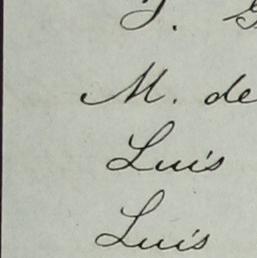 M. de
Luis
Luis